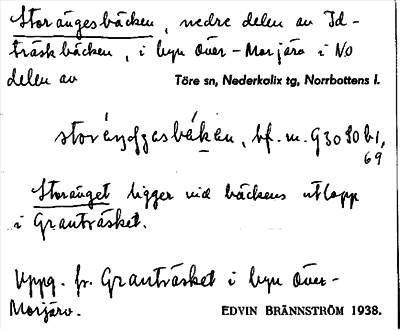 Storängesbäcken, nedre delen av Id-
träskbäcken, i byn Över-Morjärv i NO
delen av Töre sn, Nederkalix tg, Norrbottens l.
bf. m. G30S0b1,
69
Storänget ligger vid bäckens utlopp
i Granträsket.
Uppg. fr. Granträsket i byn Över-
Morjärv. EDVIN BRÄNNSTRÖM 1938.